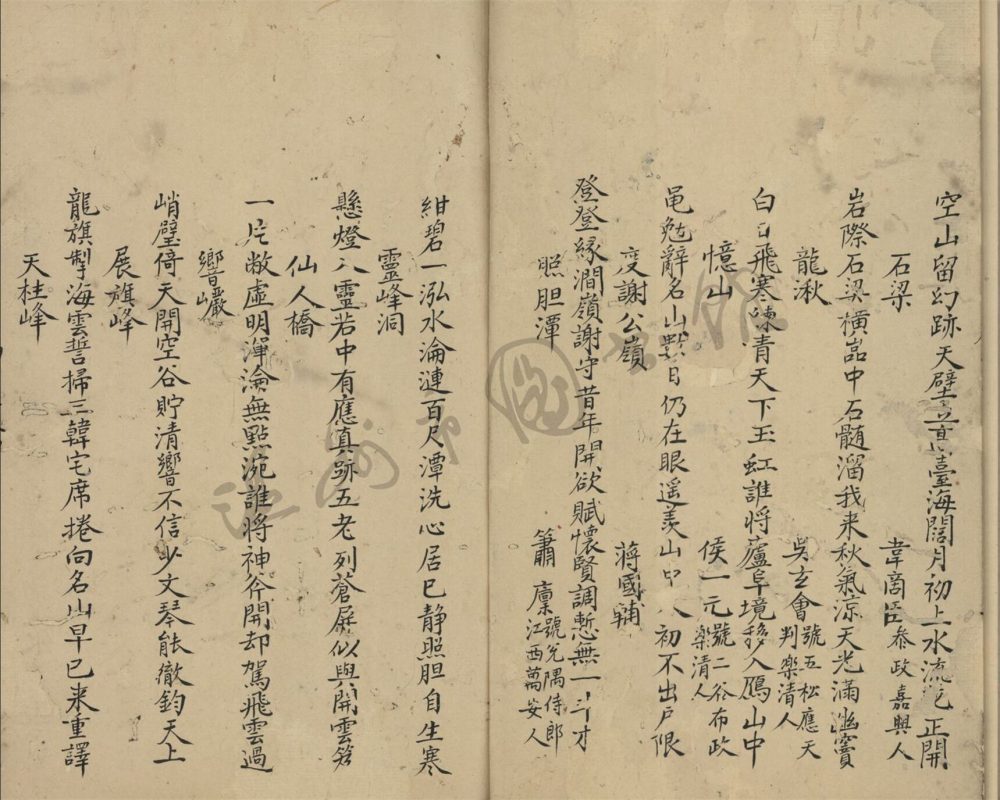 空山留幻跡天壁五臺海闊月初上水流花正開
石梁 韋商臣叅政嘉興人
岩際石梁横嵓中石髓溜我来秋氣凉天光滿幽竇
龍湫 吳玄會號五松應天判樂清人
白日飛寒湅青天下玉虹誰將蘆阜境移入鴈山中
憶山 侯一元號二谷布政樂清人
黽勉辭名山數日仍在眼遥羡山中人初不出戶限
度謝公嶺 蔣國輔
登登緣澗嶺謝守昔年開欲賦懷賢調慙無一斗才
照胆潭 蕭廩號兌隅侍郎江西萬安人
紺碧一泓水淪漣百尺潭洗心居已靜照胆自生寒
靈峰洞
懸燈入靈岩中有應真跡五老列蒼屏似與開雲笈
仙人橋
一片敞虛明渾淪無點涴誰将神斧開却駕飛雲過
響巖
峭壁倚天開空谷貯清響不信少文琴能徹鈞天上
展旗峰
龍旗掣海雲誓掃三韓宅席捲向名山早已来重譯
天柱峰
温州市圖書館